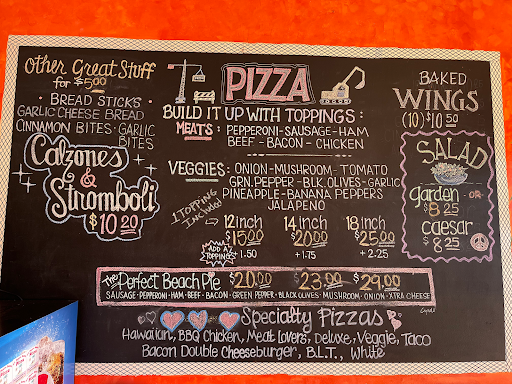 Other Great Stuff
for $5.00
• BREAD STICKS •
GARLIC CHEESE BREAD
CINNAMON BITES • GARLIC
BITES
Calzones
&
Stromboli
$10.20
PIZZA
BUILD IT UP WITH TOPPINGS :
MEATS : PEPPERONI - SAUSAGE - HAM
BEEF - BACON - CHICKEN
VEGGIES : ONION - MUSHROOM - TOMATO
GRN. PEPPER - BLK. OLIVES - GARLIC
PINEAPPLE - BANANA PEPPERS
JALAPENO
1 TOPPING
INCLUDED
12 inch 14 inch 18 inch
$15.00 $20.00 $25.00
ADD A'L
TOPPINGS + 1.50 + 1.75 + 2.25
The Perfect Beach Pie $20.00 23.00 $29.00
SAUSAGE • PEPPERONI • HAM • BEEF • BACON • GREEN PEPPER • BLACK OLIVES • MUSHROOM • ONION • XTRA CHEESE
Specialty Pizzas
Hawaiian, BBQ Chicken, Meat Lovers, Deluxe, Veggie, Taco
Bacon Double Cheeseburger, B.L.T., White
BAKED
WINGS
(10) $10.50
SALAD
garden OR
$8.25
caesar
$8.25